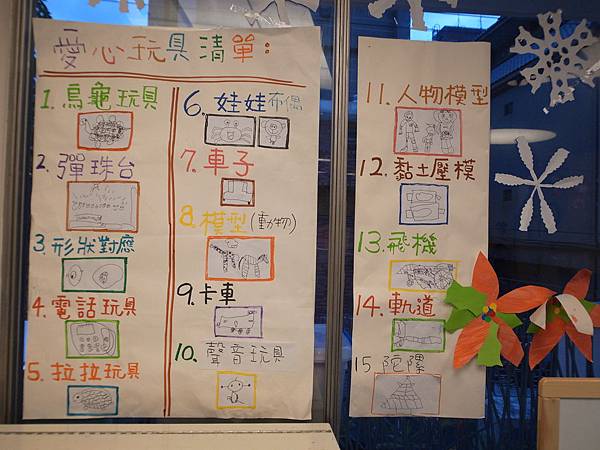 愛心玩具清單:
1.烏龜玩具
2.彈珠台
3.形狀對應
4.電話玩具
5.拉拉玩具
6.娃娃布偶
7.車子
8.模型(動物)
9.卡車
10.聲音玩具
11.人物模型
12.黏土壓模
13.飛機
14.軌道
15陀螺